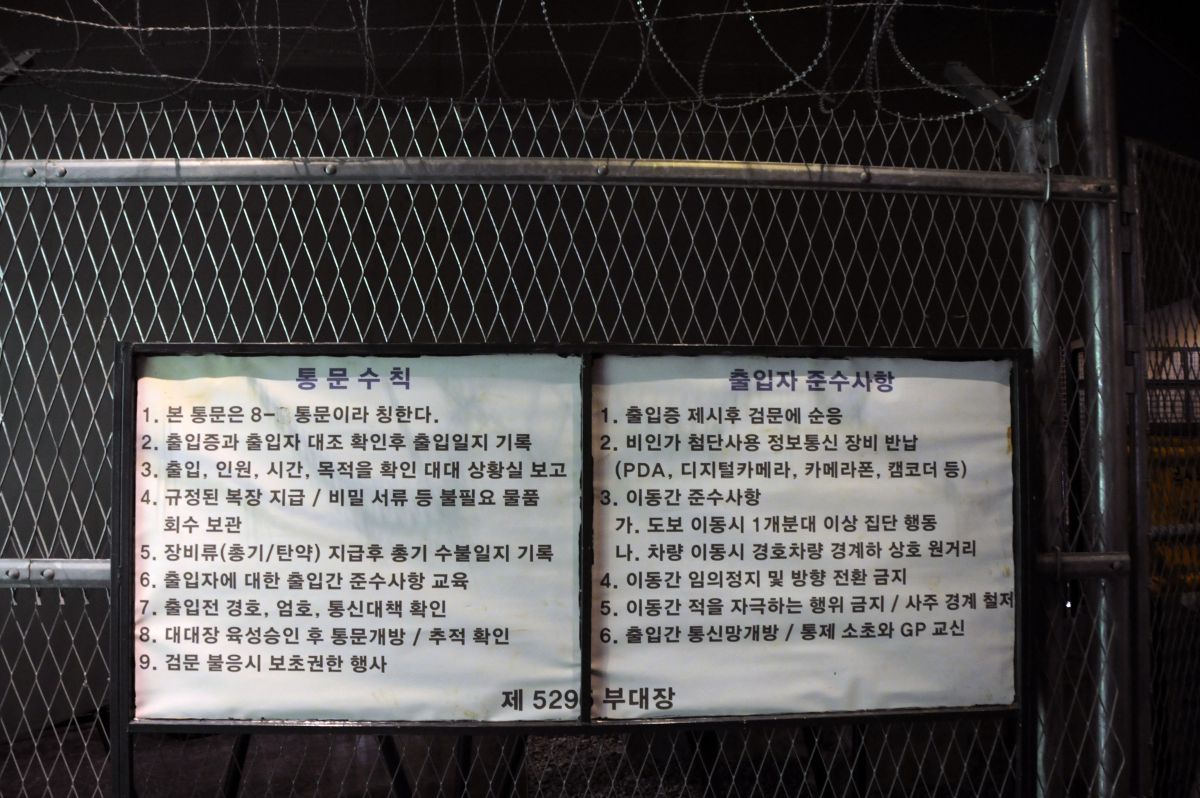 통문수칙
1. 본 통문은 8- 통문이라 칭한다.
2. 출입증과 출입자 대조 확인후 출입일지 기록
3. 출입, 인원, 시간, 목적을 확인 대대 상황실 보고
4. 규정된 복장 지급 / 비밀 서류 등 불필요 물품
회수 보관
5. 장비류(총기/탄약) 지급후 총기 수불일지 기록
6. 출입자에 대한 출입간 준수사항 교육
7. 출입전 경호, 엄호, 통신대책 확인
8. 대대장 육성승인 후 통문개방 / 추적 확인
9. 검문 불응시 보초권한 행사
출입자 준수사항
1. 출입증 제시후 검문에 순응
2. 비인가 첨단사용 정보통신 장비 반납
(PDA, 디지털카메라, 카메라폰, 캠코더 등)
3. 이동간 준수사항
가. 도보 이동시 1개분대 이상 집단 행동
나. 차량 이동시 경호차량 경계하 상호 원거리
4. 이동간 임의정지 및 방향 전환 금지
5. 이동간 적을 자극하는 행위 금지 / 사주 경계 철저
6. 출입간 통신망개방 / 통제 소초와 GP 교신
제 부대장